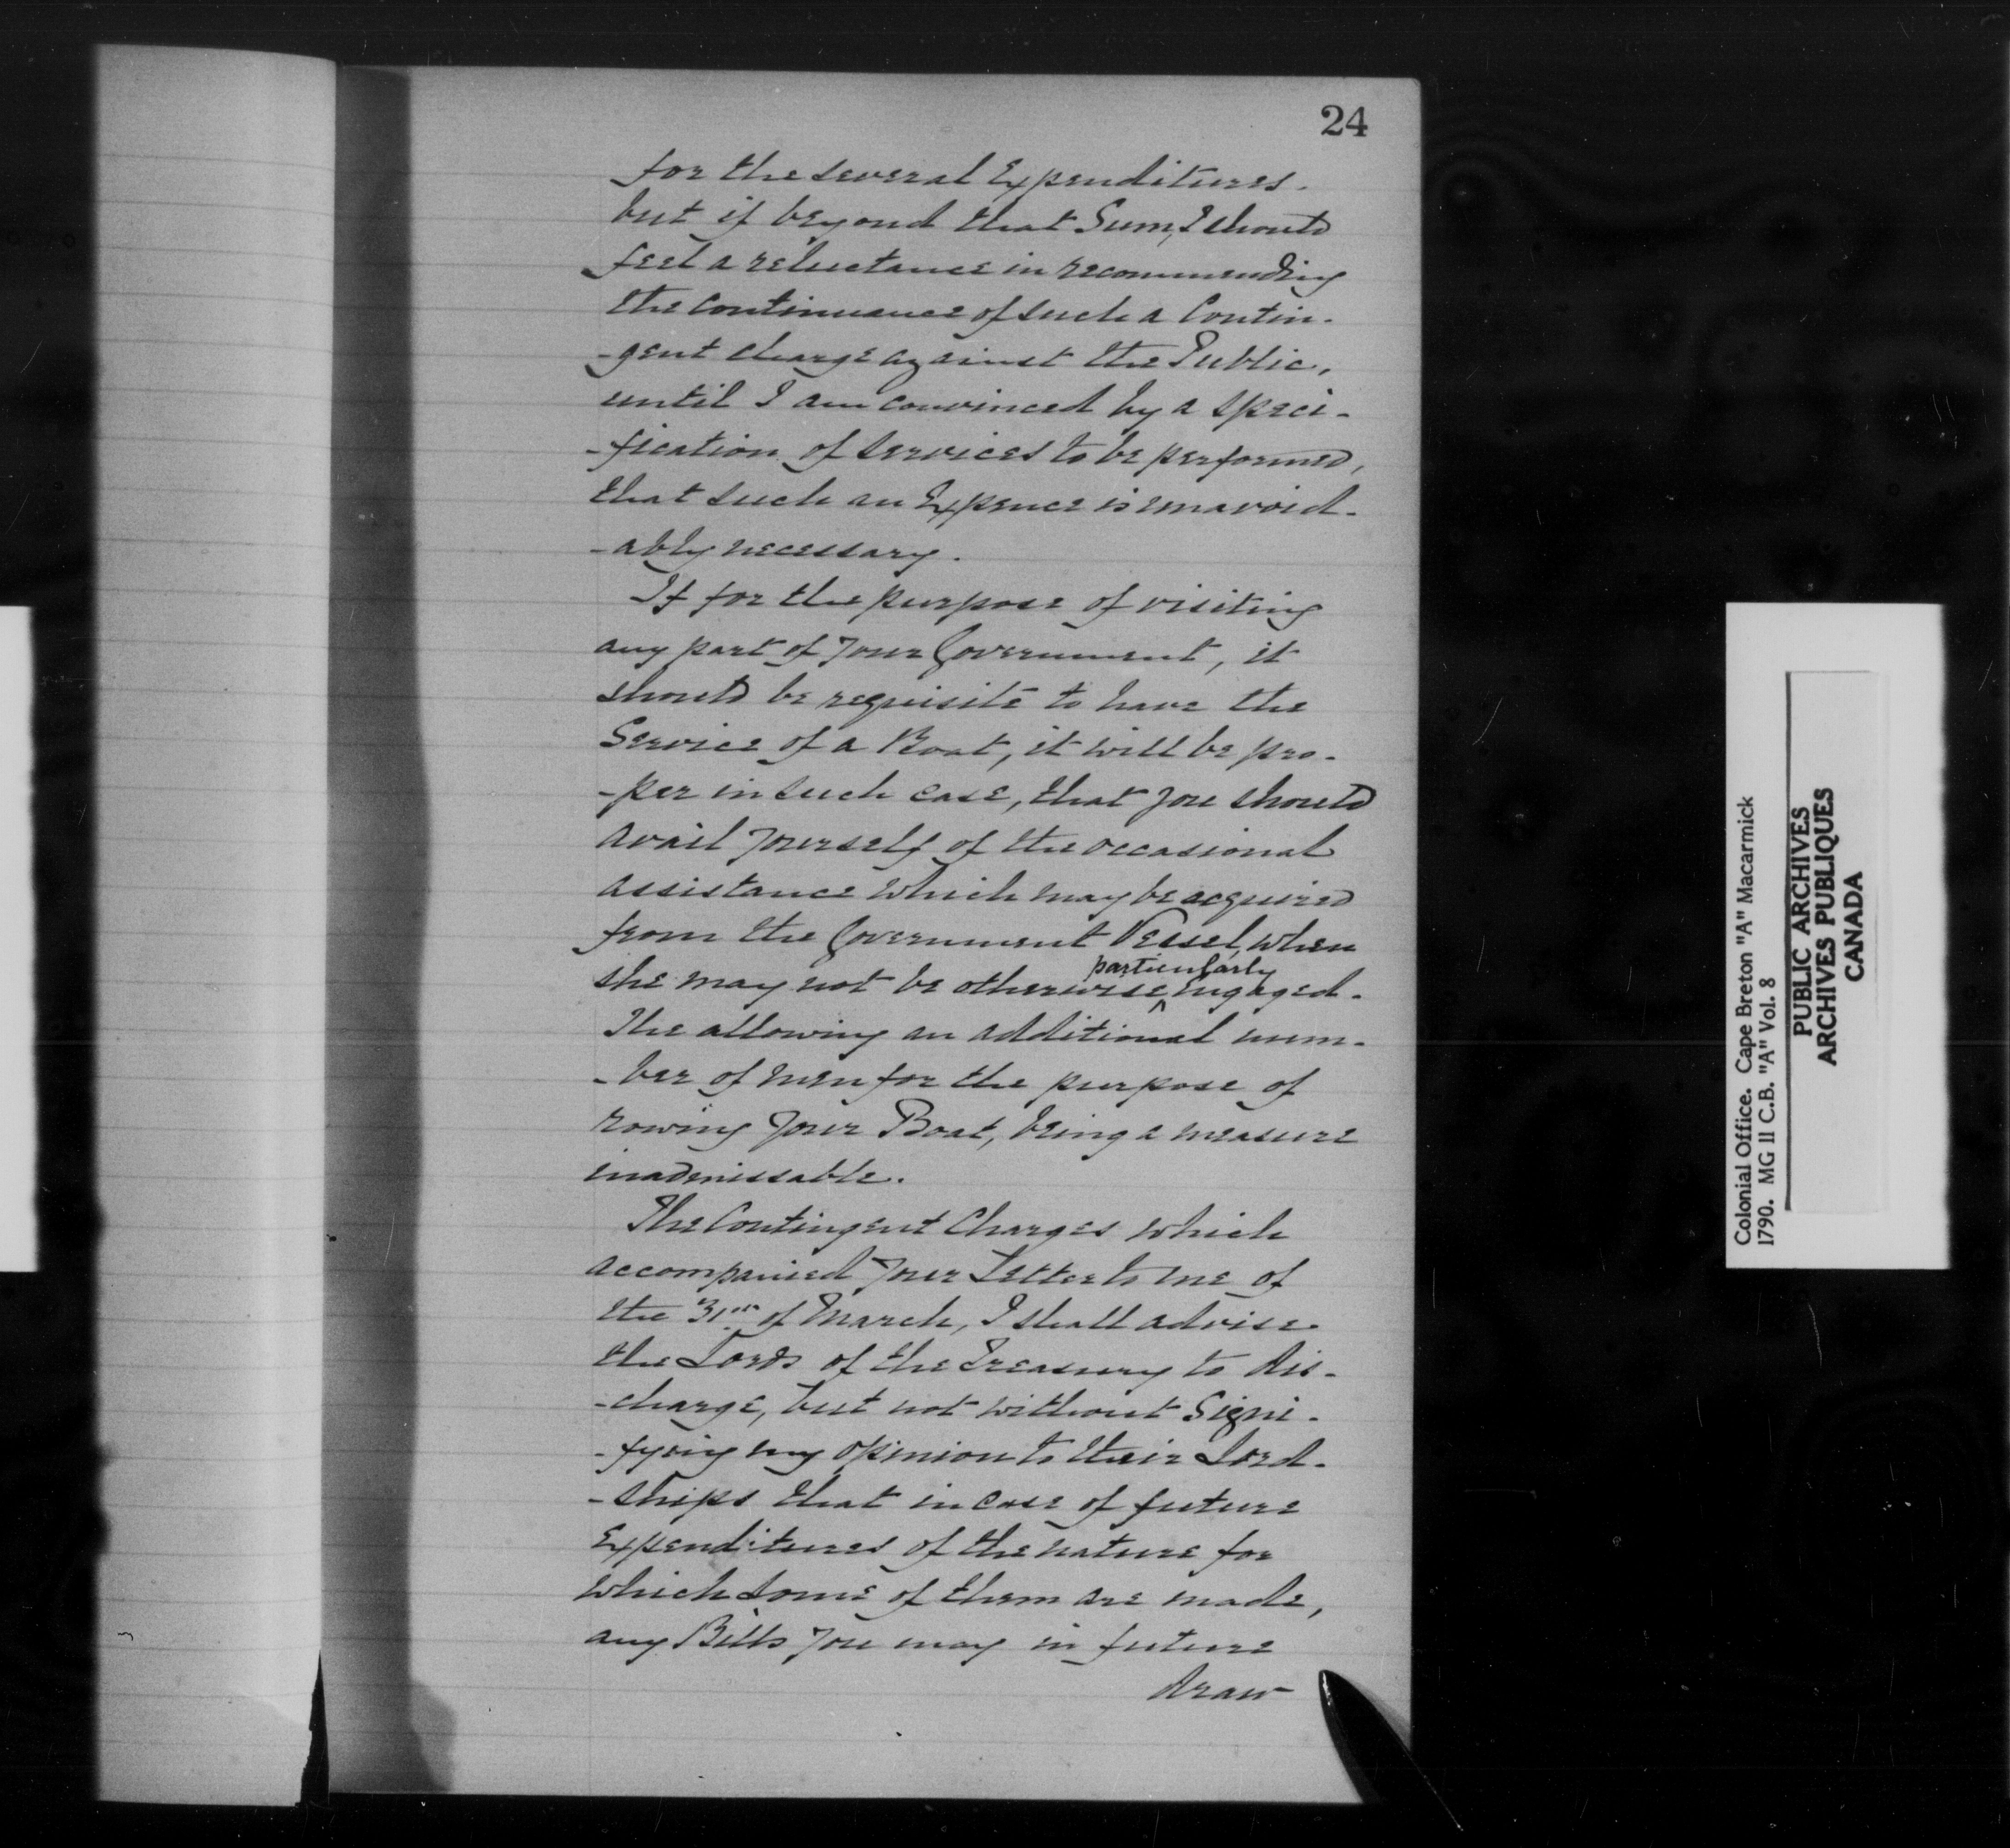 24
for the several Expenditures.
but if beyond that Sum, I should
feel a reluctance in recommending
the continuance of such a Contin-
-gent charge against the Public,
until I am convinced by a speci-
-fication of services to be performed,
that such an Expence is unavoid-
-ably necessary.
If for the purpose of visiting
any part of your Government, it
should be requisite to have the
Service of a Boat, it will be pro-
-per in such case, that you should
avail yourself of the occasional
assistance which may be acquired
from the Government Vessel, when
particularly
she may not be otherwise ^ engaged.
The allowing an additional num-
-ber of men for the purpose of
rowing your Boat, being a measure
inadmissable.
The Contingent Charges which
accompanied your Letter to me of
the 31st of March, I shall advise
the Lords of the Treasury to dis-
-charge, but not without Signi-
-fying my opinion to their Lord-
-ships that in case of future
Expenditures of the nature for
which some of them are made,
any Bills you may in future
draw
Colonial Office. Cape Breton "A" Macarmick
1790. MG 11 C.B. "A" Vol. 8
PUBLIC ARCHIVES
ARCHIVES PUBLIQUES
CANADA